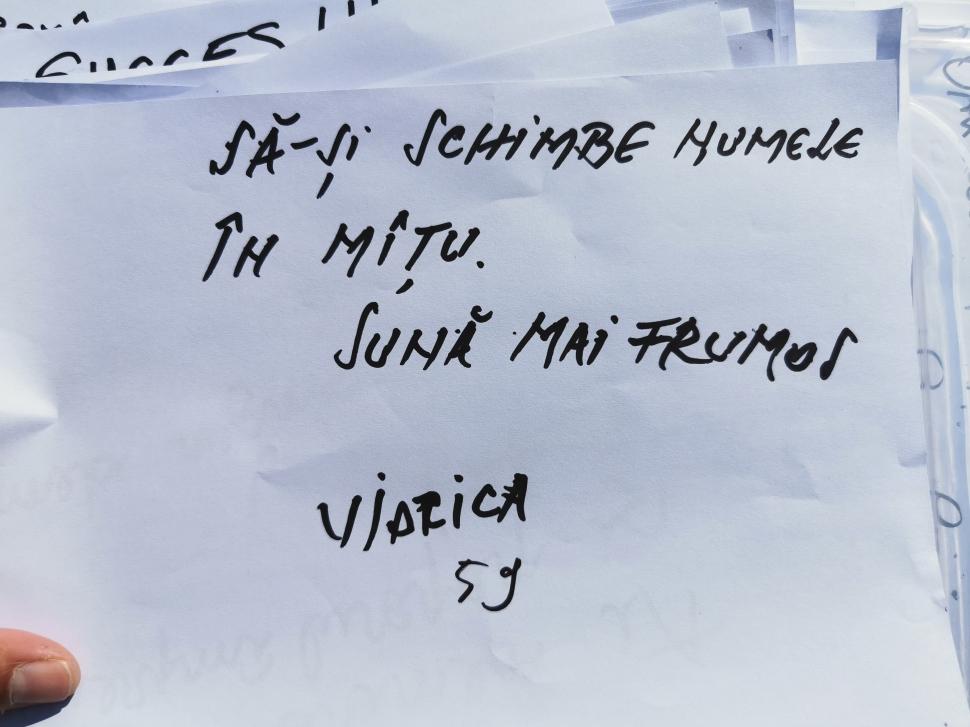 SUCCES
SĂ-ȘI SCHIMBE NUMELE
ÎN MÎȚU.
SUNĂ MAI FRUMOS
VIORICA
59